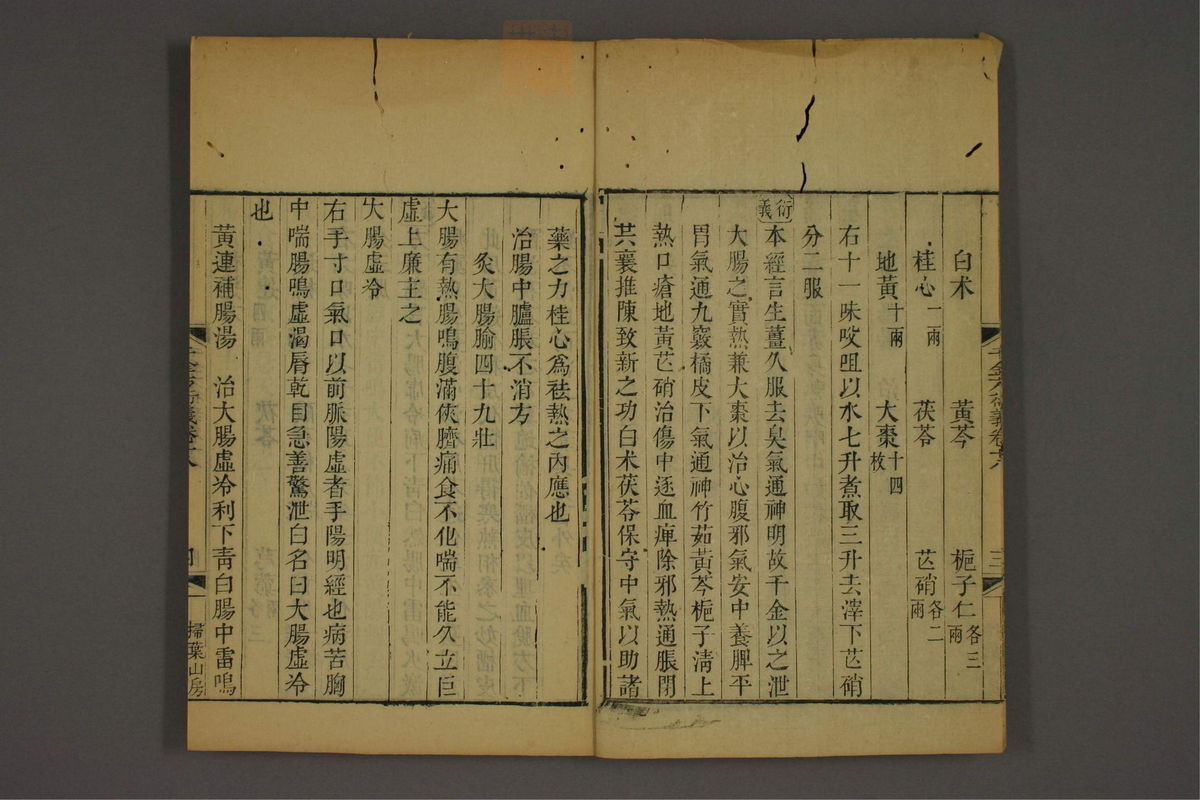 白朮 黃芩 梔子仁各三兩
桂心一兩 茯苓 芒硝各二兩
地黃十兩 大棗十四枚
右十一味㕮咀以水七升煮取三升去滓下芒硝
分二服
衍義
本經言生薑久服去臭氣通神明故千金以之泄
大腸之實熱兼大棗以治心腹邪氣安中養脾平
胃氣通九竅橘皮下氣通神竹茹黃芩梔子淸上
熱口瘡地黃芒硝治傷中逐血痺除邪熱通脹閉
共襄推陳致新之功白朮茯苓保守中氣以助諸
藥之力桂心爲祛熱之內應也
治腸中臚脹不消方
灸大腸腧四十九壯
大腸有熱腸鳴腹滿俠臍痛食不化喘不能久立巨
虛上廉主之
大腸虛冷
右手寸口氣口以前脈陽虛者手陽明經也病苦胸
中喘腸鳴虛渴唇乾目急善驚泄白名曰大腸虛冷
也
黃連補腸湯 治大腸虛冷利下靑白腸中雷鳴
千金方衍義卷十八
掃葉山房